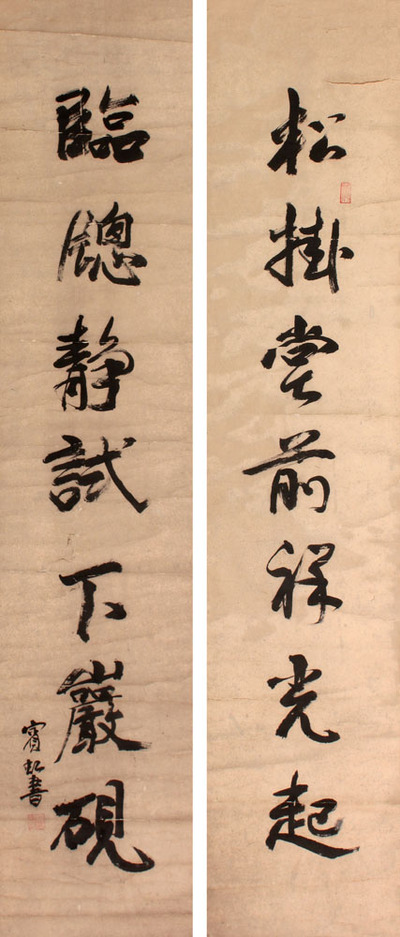 松掛堂前祥光起
臨牕静試下巖硯
賓虹書